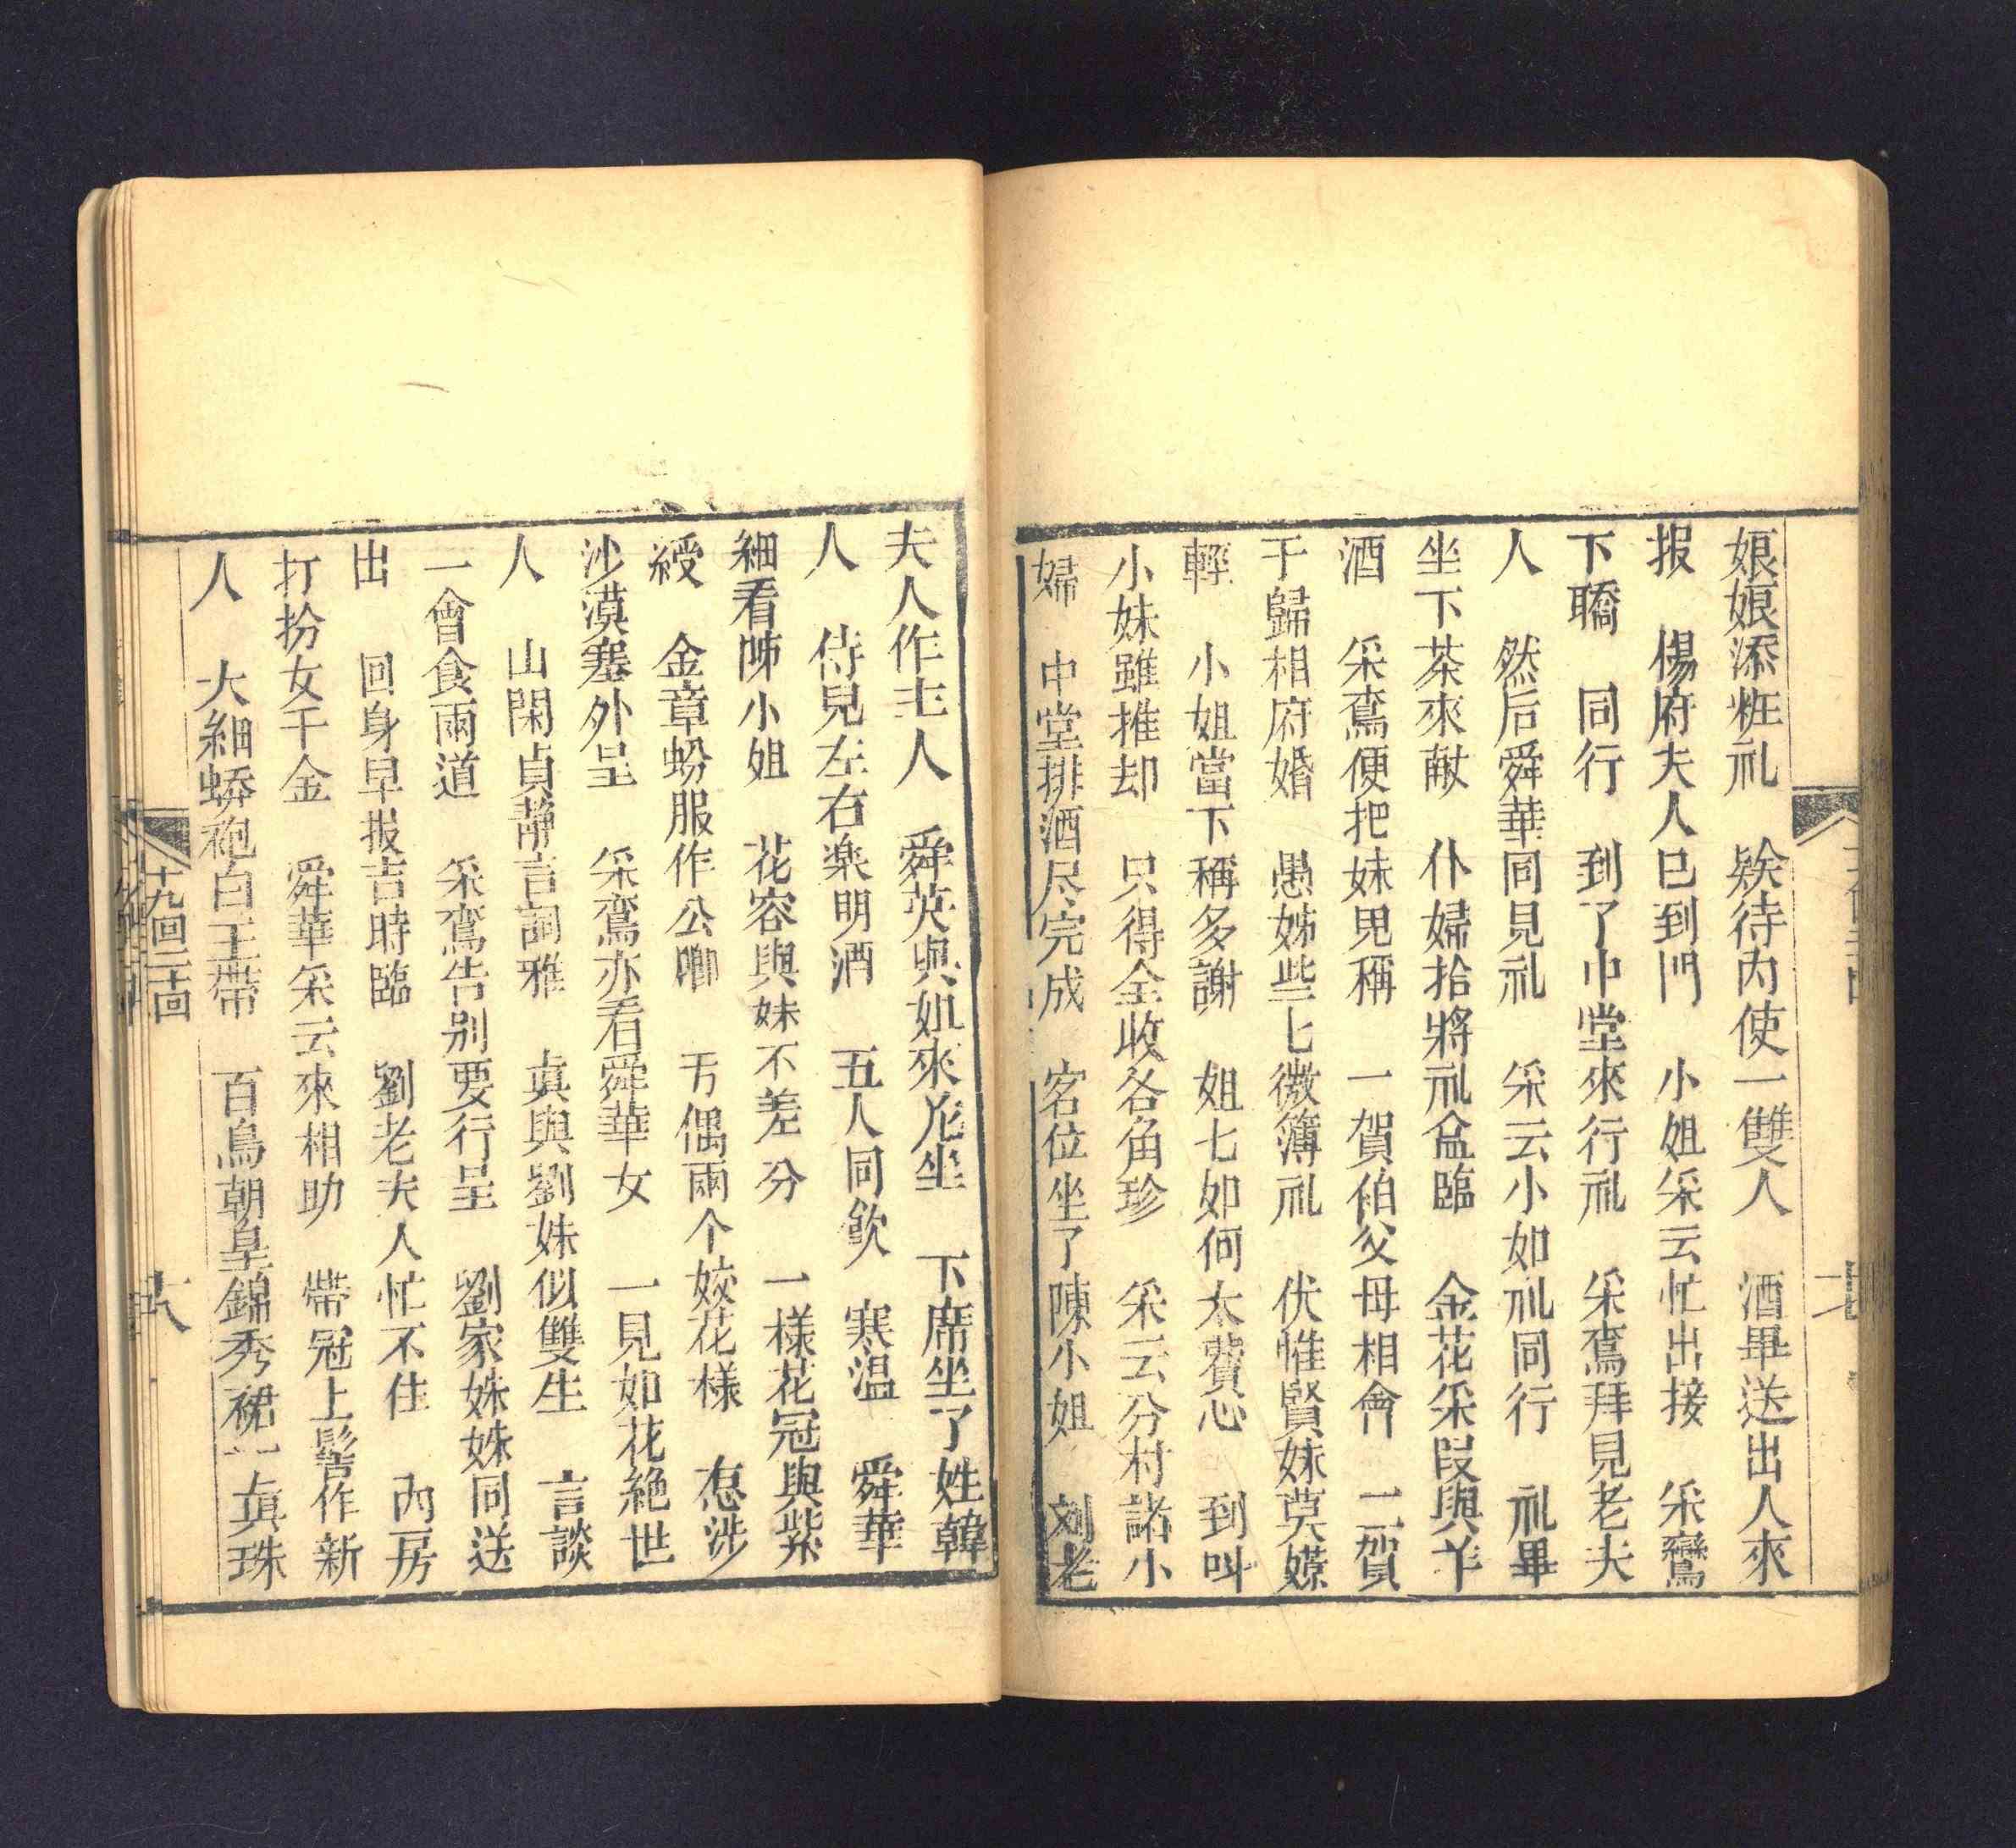 娘娘添粧礼　欵待內使一雙人　酒畢送出人來
报　楊府夫人已到門　小姐采云忙出接　采鸞
下轎　同行　到了中堂來行礼　采鸾拜見老夫
人　然后舜華同見礼　采云小如礼同行　礼畢
坐下茶來献　仆婦拾將礼盒臨　金花采段與丫
酒　采鸾便把妹児稱　一賀伯父母相會　二賀
于歸相府婚　愚姊些七微簿礼　伏惟賢妹莫嫌
輕　小姐當下稱多謝　姐七如何太費心　到叫
小妹雖推却　只得全收各角珍　采云分村諸小
婦　中堂排酒尽完成　客位坐了陳小姐　刘老
夫人作主人　舜英與姐來坐　下席坐了姓韓
人　侍兒左右楽明酒　五人同飲　寒温　舜華
細看陳小姐　花容與妹不差分　一樣花冠與紫
綬　金章蟒服作公卿　丐偶兩个姣花樣　怱涉
沙漠塞外呈　采鸾亦看舜華女　一見如花絶世
人　山閑貞靜言詞雅　眞與劉妹似雙生　言談
一會食兩道　采鸾告别要行呈　劉家姝姝同送
出　回身早报吉時臨　劉老夫人忙不住　內房
打扮女千金　舜華采云來相助　帶冠上髻作新
人　大紬蟒袍白玉帶　百鳥朝皇錦秀裙　眞珠
十九回二十回
十八